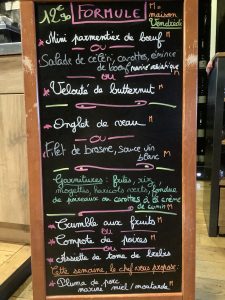 12€90 FORMULE M = maison
Vendredi
* Mini parmentier de bœuf M
OU
Salade de céleri, carottes, émincé
de bœuf mariné asiatique M
OU
* Velouté de butternut M
* Onglet de veau M
OU
Filet de brosme, sauce vin
blanc M
Garnitures : frites, riz,
mogettes, haricots verts, fondue
de poireaux ou carottes à la crème
de cumin M
* Crumble aux fruits M
OU
* Compote de poires M
OU
* Assiette de tome de brebis
Cette semaine, le chef vous propose
* Pluma de porc
mariné miel/moutarde M